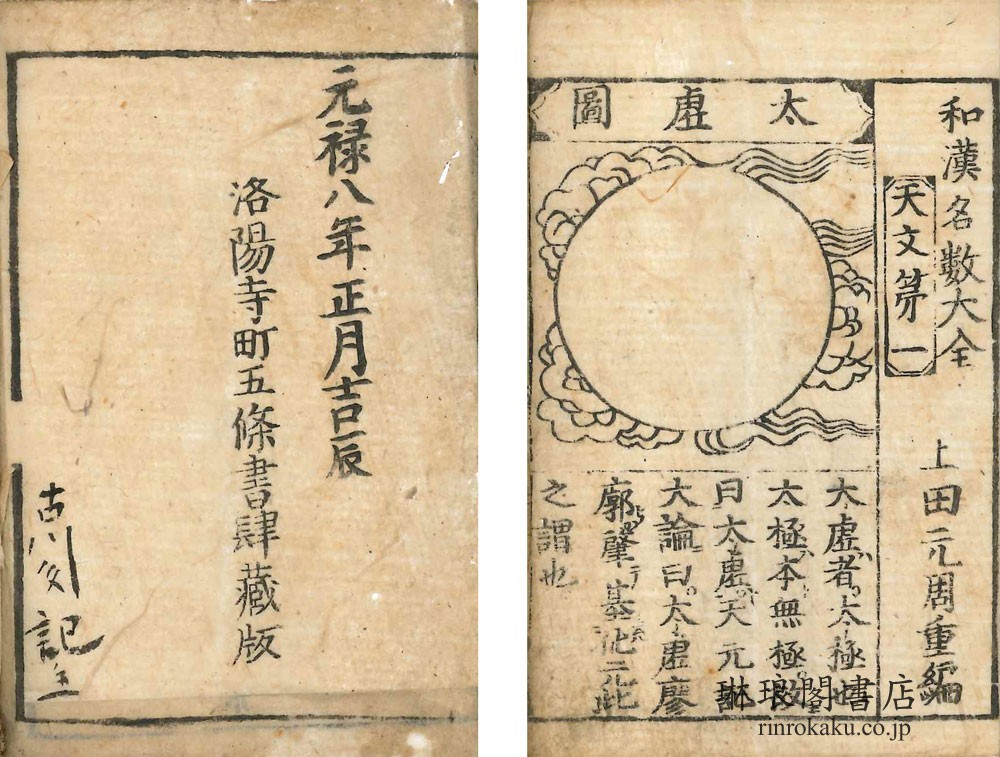 和漢名數大全
上田元周重編
天文第一
太虛圖
太虛者太極也
太極本無極故
曰太虛天元
大論曰太虛廖
廓肇基化元此
之謂也
元禄八年正月吉辰
洛陽寺町五條書肆藏版
琳琅閣書店
rinrokaku.co.jp